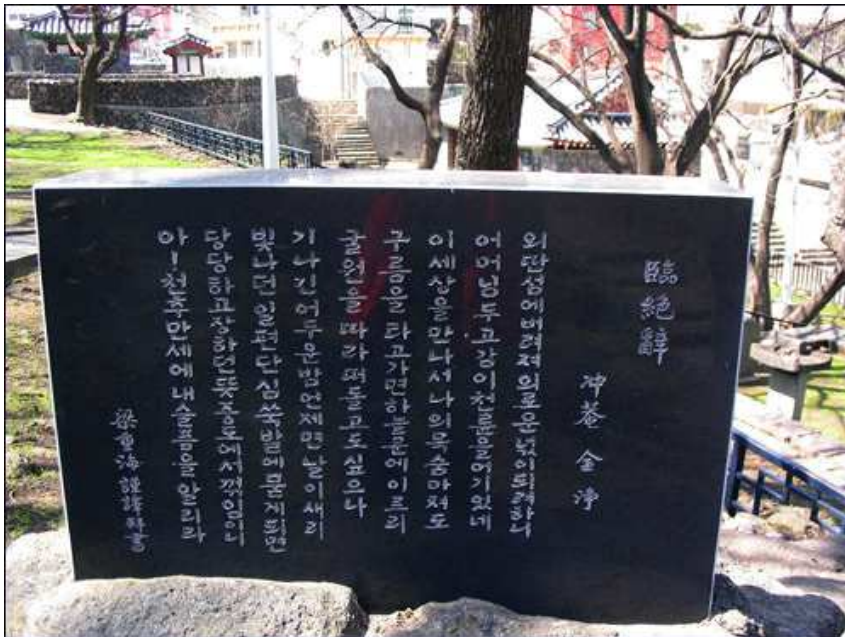 臨絶辭
冲菴 金淨
외딴섬에버려져외로운넋이되려하니
어머님두고감이천륜을어기었네
이세상을만나서나의목숨마저도
구름을타고가면하늘문에이르리
굴원을따라떠돌고도싶으나
기나긴어두운밤언제면날이새리
빛나던일편단심쑥밭에묻게되면
당당하고장하던뜻중도에서꺾임이니
아!천추만세에내슬픔을알리라
梁重海 謹譯幷書